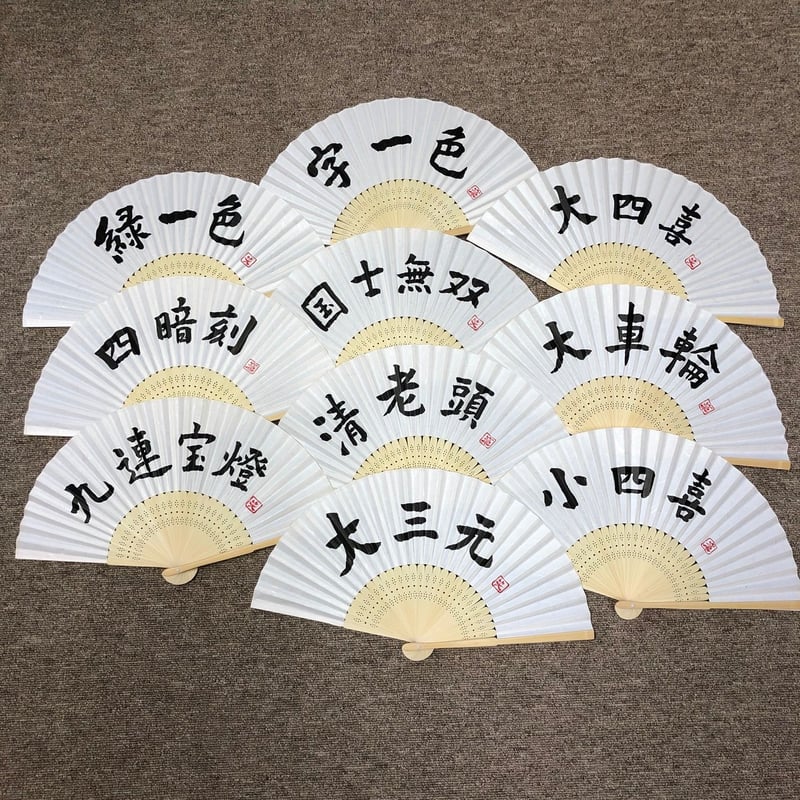 字一色
緑一色
大四喜
国士無双
四暗刻
大車輪
清老頭
九連宝燈
小四喜
大三元